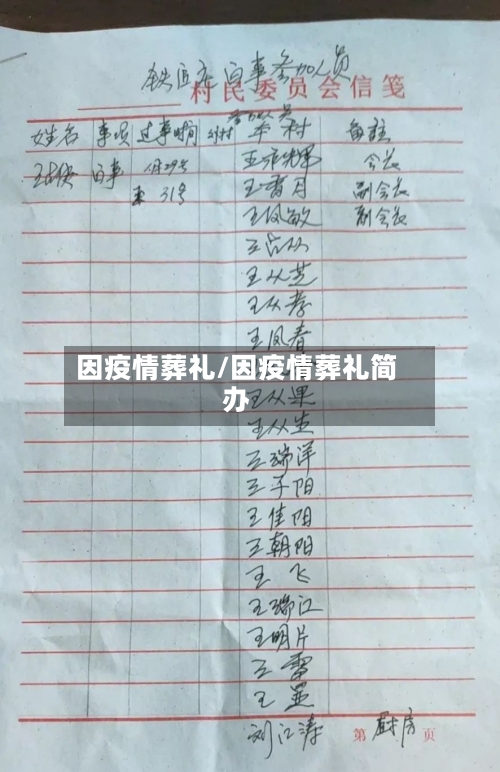 铁匠庄白事参加人员
村民委员会信笺
姓名 事项 过事时间 外村 本村 备注
白事 29号 王 辉 会长
31号 王秀月 副会长
王凤敏 副会长
王占从
王从芝
王从孝
王凤春
因疫情葬礼/因疫情葬礼简
办
王从果
王从生
王瑞洋
王子阳
王佳阳
王朝阳
王飞
王瑞江
王明片
王雷
王显
刘江涛 第 厨房 页